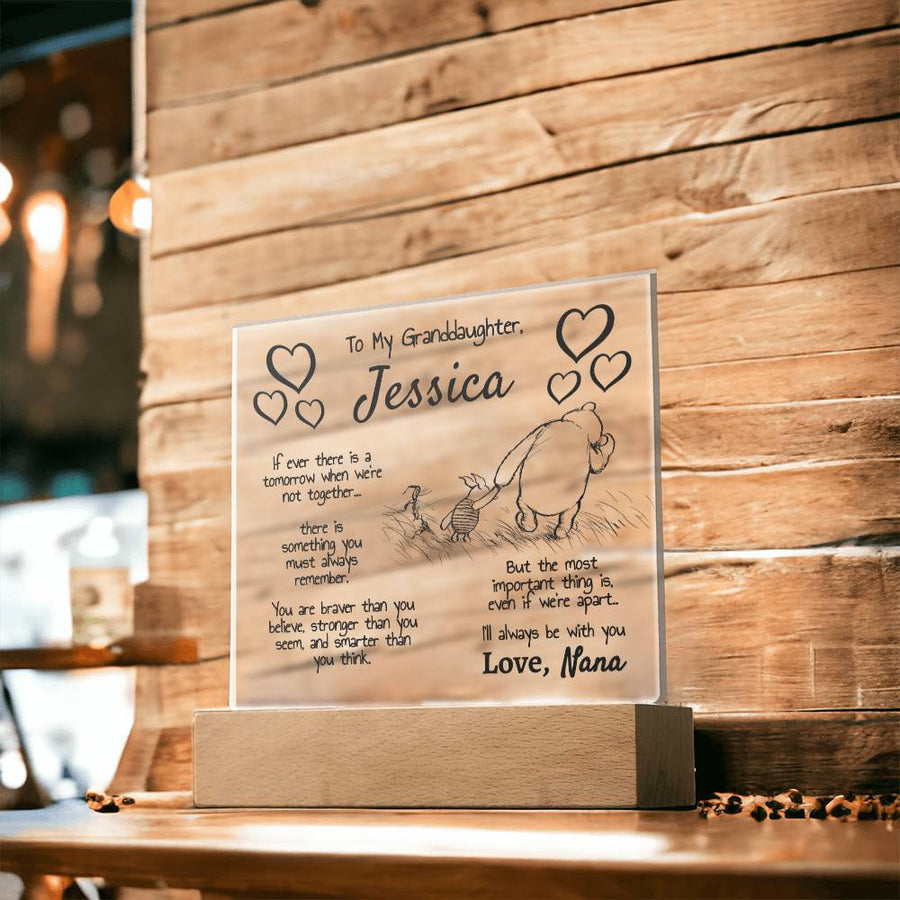 To My Granddaughter,
Jessica
If ever there is a
tomorrow when we're
not together...
there is
something you
must always
remember.
You are braver than you
believe, stronger than you
seem, and smarter than
you think.
But the most
important thing is,
even if we're apart..
I'll always be with you
Love, Nana